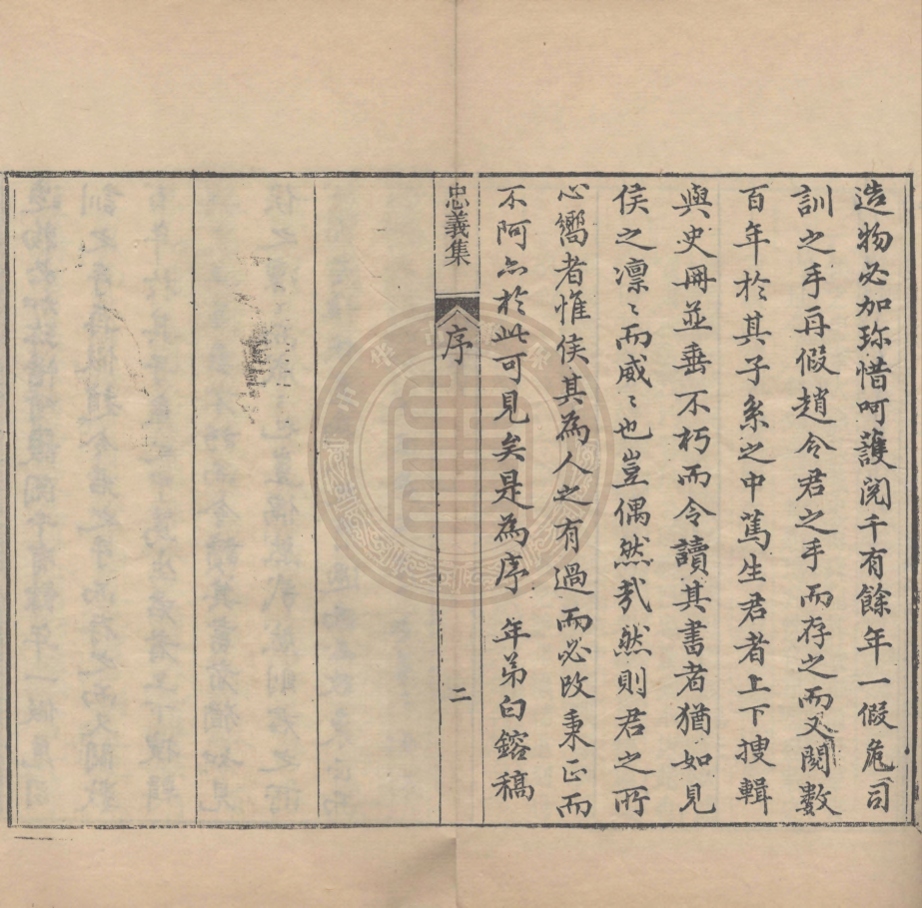 造物必加珎惜呵護閱千有餘年一假危司
訓之手再假趙令君之手而存之而又閱數
百年於其子系之中篤生君者上下搜輯
與史冊並垂不朽而令讀其書者猶如見
侯之凜〻而威〻也豈偶然㢤然則君之所
心嚮者惟侯其為人之有過而必改秉正而
不阿亦於此可見矣是為序 年弟白鎔稿
忠義集
序
二